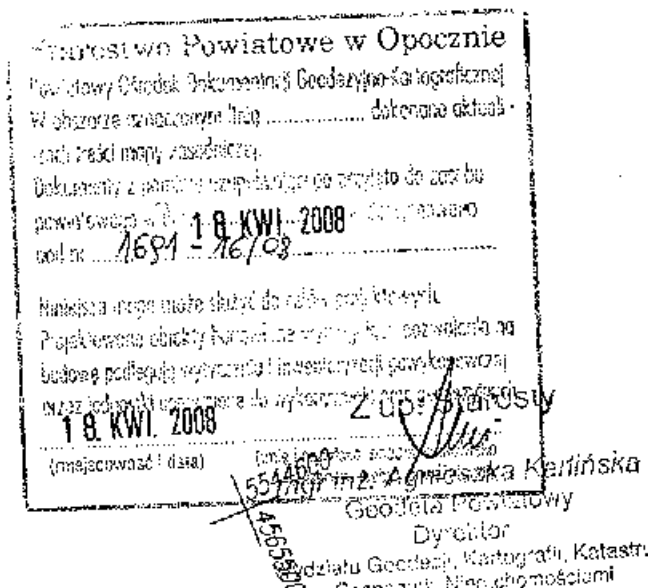 Starostwo Powiatowe w Opocznie
Powiatowy Ośrodek Dokumentacji Geodezyjno-Kartograficznej
W obszarze oznaczonym linią .................. dokonano aktuali-
zacji treści mapy zasadniczej.
Dokumenty z pomiaru przyjęto do zasobu
powiatowego 18. KWI. 2008
pod nr 1691 - 16/08
Niniejsza mapa może służyć do celów projektowych.
Projektowane obiekty budowlane pozwolenia na
budowę podlegają wytyczeniu i inwentaryzacji powykonawczej
przez jednostki uprawnione do wykonywania
18. KWI. 2008
Z up. Starosty
(miejscowość i data)
5544600
mgr inż. Agnieszka Kerlińska
Geodeta Powiatowy
4565500
Dyrektor
Wydziału Geodezji, Kartografii, Katastru
Nieruchomościami